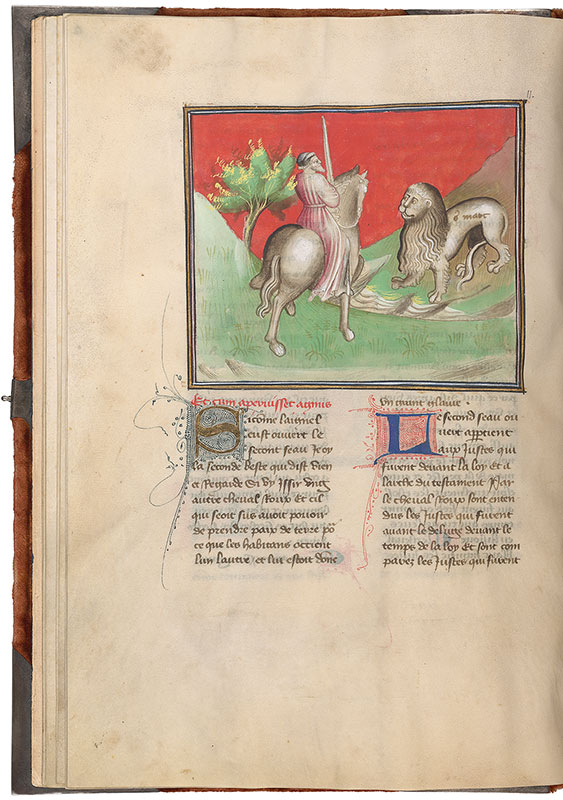 11.
s marc
Et cum aperuisset agnus
Sicome laignel
eust ouvert le
second seau Je oy
la seconde beste qui dist Vien
et Regarde Si vy Issir ung
autre cheval Roux et cil
qui seoit sus avoit pooir
de prendre paix de terre po
ce que les habitans occient
lun lautre, et lui estoit donc
Un grant glaive.
Le second seau ou
vert appartient
aux Justes qui
furent devant la loy et a
larche du testament Par
le cheval Roux sont enten
dus les Justes qui furent
avant le deluge devant le
temps de la loy et sont com
parez les Justes qui furent